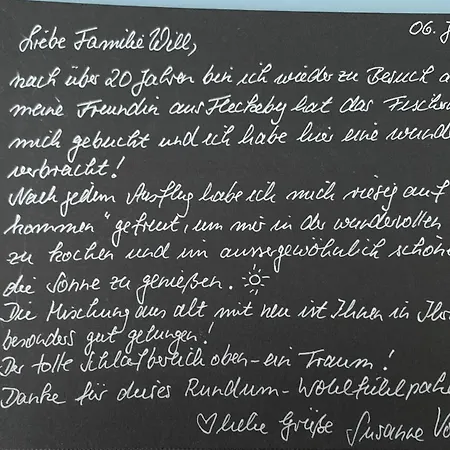 06. J
Liebe Familie Will,
nach über 20 Jahren bin ich wieder zu Besuch a
meine Freundin aus Fleckeby hat das Fischer
mich gebucht und ich habe hier eine wunde
verbracht!
Nach jedem Ausflug habe ich mich riesig auf
kommen" gefreut, um mir in der wundervollen
zu kochen und im aussergewöhnlich schöne
die Sonne zu genießen.
Die Mischung aus alt mit neu ist Ihnen in Ihr
besonders gut gelungen!
Der tolle Schlafbereich oben - ein Traum!
Danke für dieses Rundum-Wohlfühlpake
liebe Grüße Susanne Vo